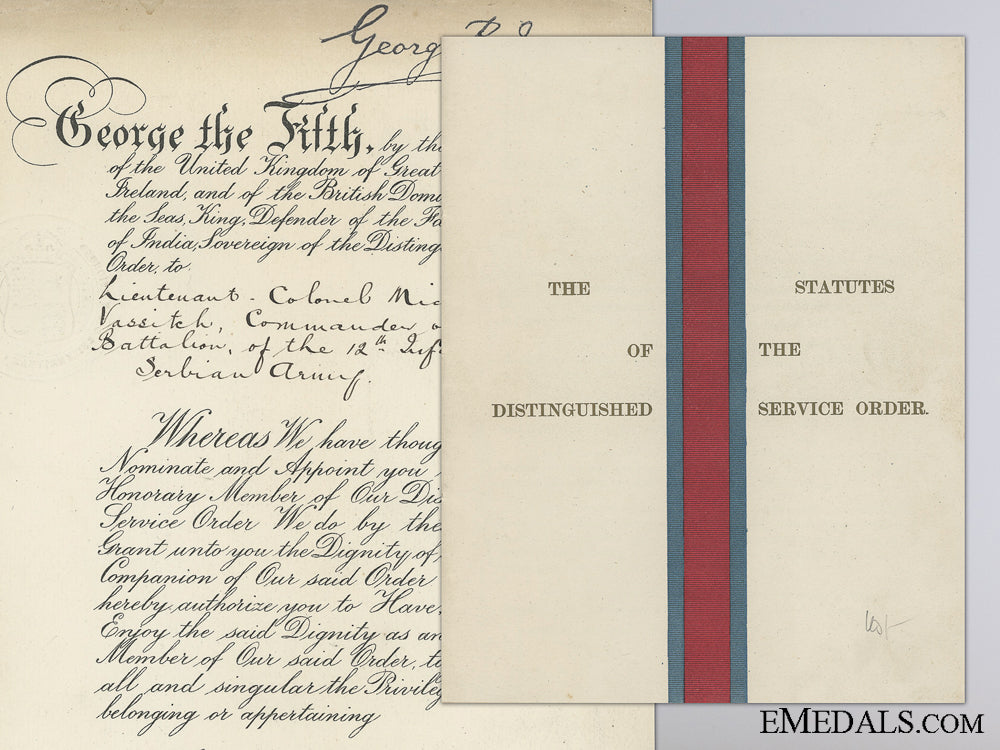 George R.I.
George the Fifth, by the
of the United Kingdom of Great
Ireland, and of the British Dom
the Seas, King, Defender of the Fa
of India, Sovereign of the Disting
Order, to
Lieutenant-Colonel Mic
Vassitch, Commander o
Battalion, of the 12th Inf
Serbian Army.
Whereas We have thoug
Nominate and Appoint you
Honorary Member of Our Dis
Service Order We do by the
Grant unto you the Dignity of
Companion of Our said Order
hereby authorize you to Have,
Enjoy the said Dignity as an
Member of Our said Order, to
all and singular the Privileg
belonging or appertaining
THE STATUTES
OF THE
DISTINGUISHED SERVICE ORDER.
EMEDALS.COM